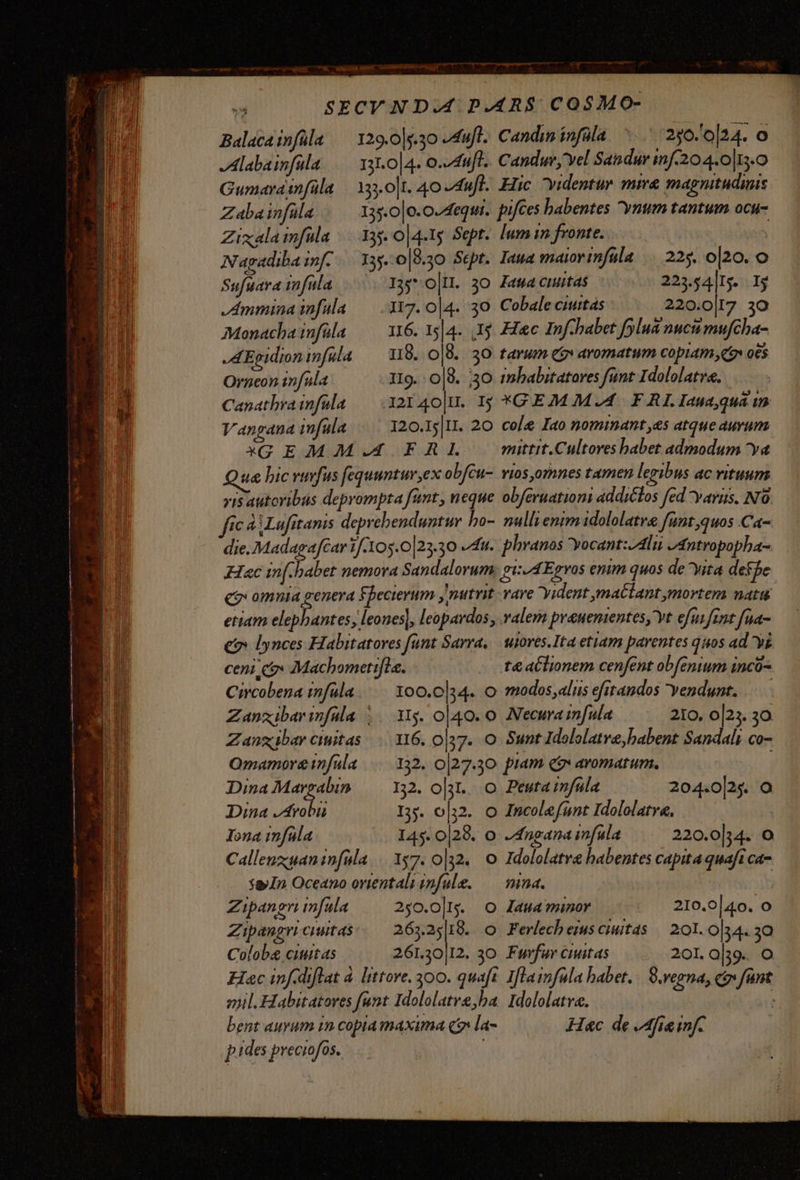 SECVNDA PARS COSMO-
Balaca insula 129.0|5.30 Aust.
Alaba insula 131.0|4. 0. Aust.
Gumara insula 133.0|1. 40 Aust.
Zaba insula 135.0|0.0. Aequi.
Zixala insula 135. 0|4.15 Sept.
Nagadiba ins. 135. 0|8.30 Sept.
Susuara insula 135. 0|11. 30
Ammina insula 117. 0|4. 30
Monacha insula 116. 15|4. 15
AEgidion insula 118. 0|8. 30
Orneon insula 119. 0|8. 30
Canathra insula 121 40|11. 15
Vangana insula 120.15|11. 20
*GEMMA FRI.
Quæ hic rursus sequuntur, ex obscu-
ris autoribus deprompta sunt, neque
sic à Lusitanis deprehenduntur ho-
die. Madagascar is. 105.0|23.30 Au.
Hæc ins. habet nemora Sandalorum,
& omnia genera specierum, nutrit
etiam elephantes, leones, leopardos,
& lynces Habitatores sunt Sarra,
ceni, & Machometistæ.
Circobena insula 100.0|34. 0
Zanzibar insula 115. 0|40. 0
Zanzibar ciuitas 116. 0|37. 0
Omamoræ insula 132. 0|27.30
Dina Margabin 132. 0|31. 0
Dina Arobii 135. 0|32. 0
Iona insula 145. 0|28. 0
Callenzuan insula 157. 0|32. 0
In Oceano orientali insulæ.
Zipangri insula 250.0|15. 0
Zipangri ciuitas 263.25|18. 0
Colobæ ciuitas 261.30|12. 30
Hæc ins. distat à littore. 300. quasi
mil. Habitatores sunt Idololatræ, ha
bent aurum in copia maxima & la-
pides preciosos.
Candin insula 250. 0|24. 0
Candur, vel Sandur ins. 204.0|13.0
Hic videntur miræ magnitudinis
pisces habentes vnum tantum ocu-
lum in fronte.
Iaua maior insula 225. 0|20. 0
Iaua ciuitas 223.54|15. 15
Cobale ciuitas 220.0|17 30
Hæc Ins. habet syluā nucū muscha-
tarum & aromatum copiam, & oēs
inhabitatores sunt Idololatræ.
*GEMMA FRI. Iaua, quā in
colæ Iao nominant, æs atque aurum
mittit. Cultores habet admodum va
rios, omnes tamen legibus ac rituum
obseruationi addictos sed variis. Nō
nulli enim idololatræ sunt, quos Ca-
phranos vocant: Alii Antropopha-
gi: AEgros enim quos de vita despe
rare vident, mactant, mortem natu
ralem præuenientes, vt esui sint sua-
uiores. Ita etiam parentes quos ad vi
tæ actionem censent ob senium incō-
modos, aliis esitandos vendunt.
Necura insula 210. 0|23. 30
Sunt Idololatræ, habent Sandali co-
piam & aromatum.
Peuta insula 204.0|25. 0
Incolæ sunt Idololatræ,
Angana insula 220.0|34. 0
Idololatræ habentes capita quasi ca-
nina.
Iaua minor 210.0|40. 0
Ferlech eius ciuitas 201. 0|34. 30
Furfur ciuitas 201. 0|39. 0
Ista insula habet. 8. regna, & sunt
Idololatræ.
Hæc de Asiæ ins.